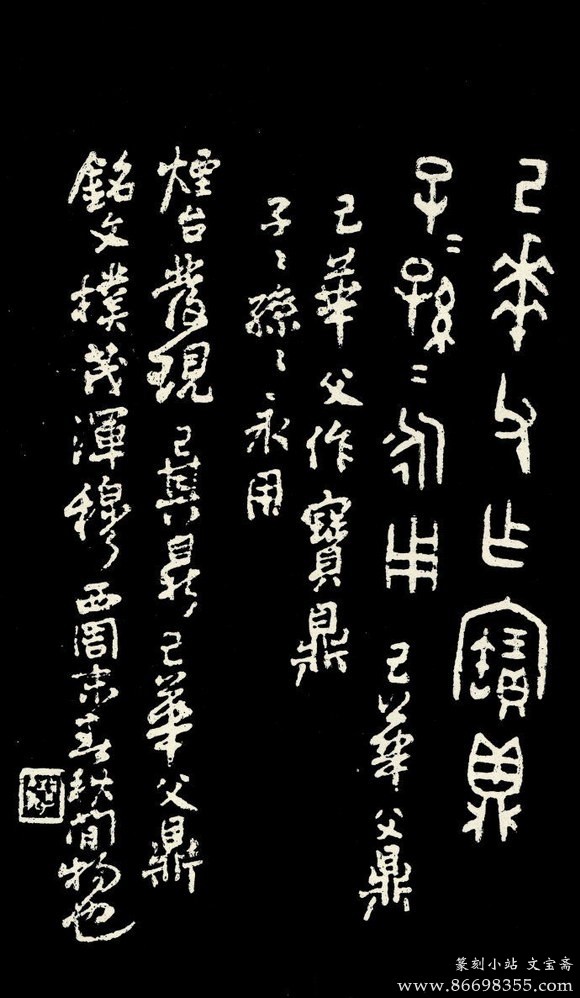 己華父作寶鼎
子＝孫＝永用 己華父鼎
己華父作寶鼎
子〻孫〻永用
煙台發現己其鼎己華父鼎
銘文樸茂渾穆西周末春秋間物也
篆刻小站 文宝斋
www.86698355.com